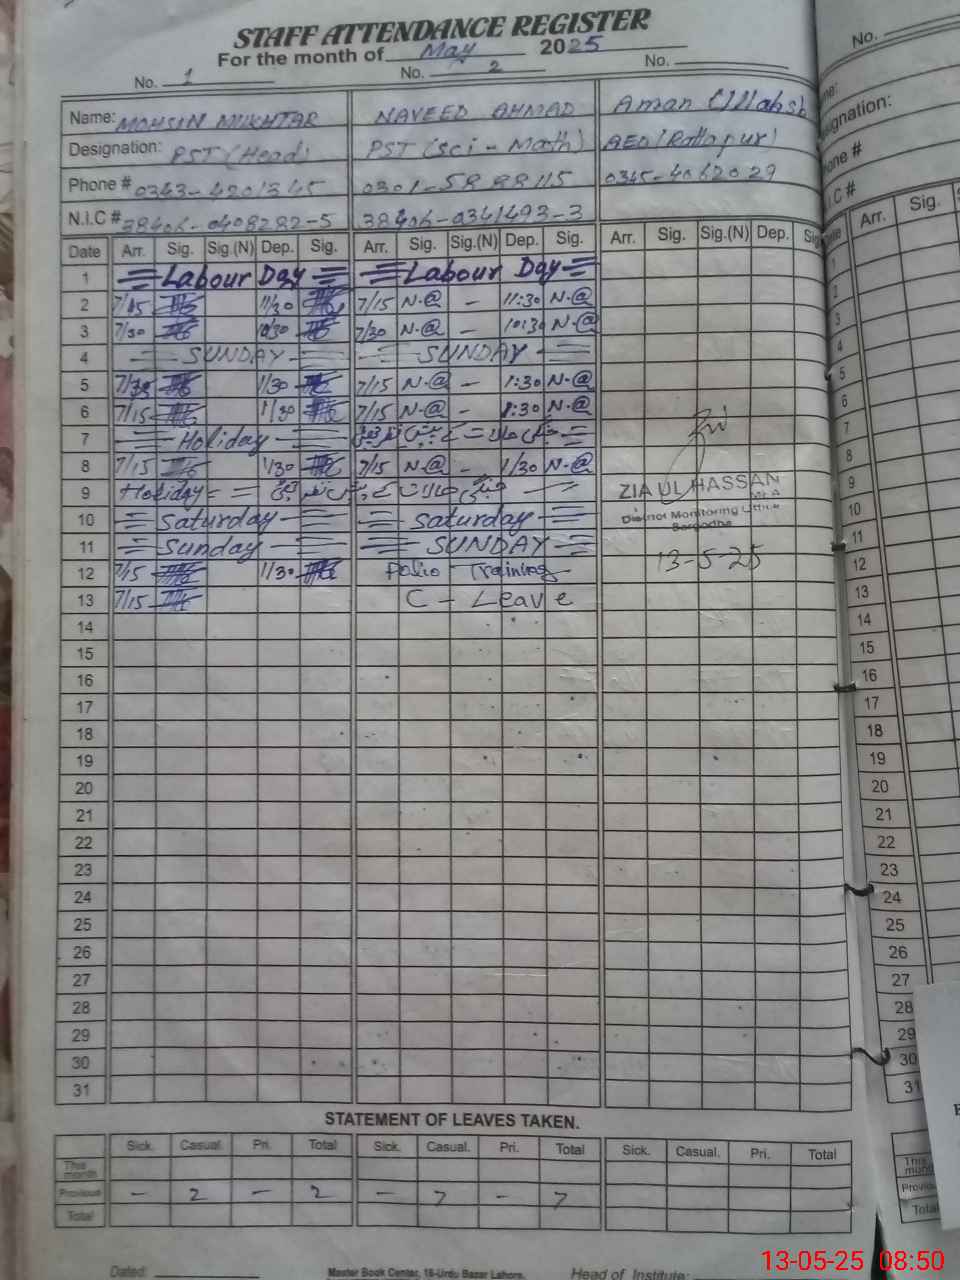 STAFF ATTENDANCE REGISTER
For the month of May 2025
No. 1 No. 2 No.
Name: MOHSIN MUKHTAR NAVEED AHMAD Aman Ullah
Designation: PST (Head) PST (Sci - Math) AEO
Phone # 0343-4201345 0301-5888115 0345-4062029
N.I.C # 38406-0408282-5 38406-0341493-3
Date Arr. Sig. Sig.(N) Dep. Sig. Arr. Sig. Sig.(N) Dep. Sig. Arr. Sig. Sig.(N) Dep. Sig
1 Labour Day Labour Day
2 7/15 11/30 7/15 N.@ - 11:30 N.@
3 7/30 10/30 7/30 N.@ - 10:30 N.@
4 SUNDAY SUNDAY
5 7/15 1/30 7/15 N.@ - 1:30 N.@
6 7/15 1/30 7/15 N.@ - 1:30 N.@
7 Holiday
8 7/15 1/30 7/15 N.@ - 1/30 N.@
9 Holiday
ZIA UL HASSAN
10 Saturday Saturday
District Monitoring Officer
Sargodha
11 Sunday SUNDAY
12 7/15 1/30 Polio Training
13-5-25
13 7/15 C - Leave
14
15
16
17
18
19
20
21
22
23
24
25
26
27
28
29
30
31
STATEMENT OF LEAVES TAKEN.
Sick. Casual. Pri. Total Sick. Casual. Pri. Total Sick. Casual. Pri. Total
This month
Previous - 2 - 2 - 7 - 7
Total
Dated: Master Book Center, 16-Urdu Bazar Lahore. Head of Institute:
No.
Designation:
Phone #
N.I.C #
Date Arr. Sig.
1
2
3
4
5
6
7
8
9
10
11
12
13
14
15
16
17
18
19
20
21
22
23
24
25
26
27
28
29
30
31
This month
Previous
Total
13-05-25 08:50